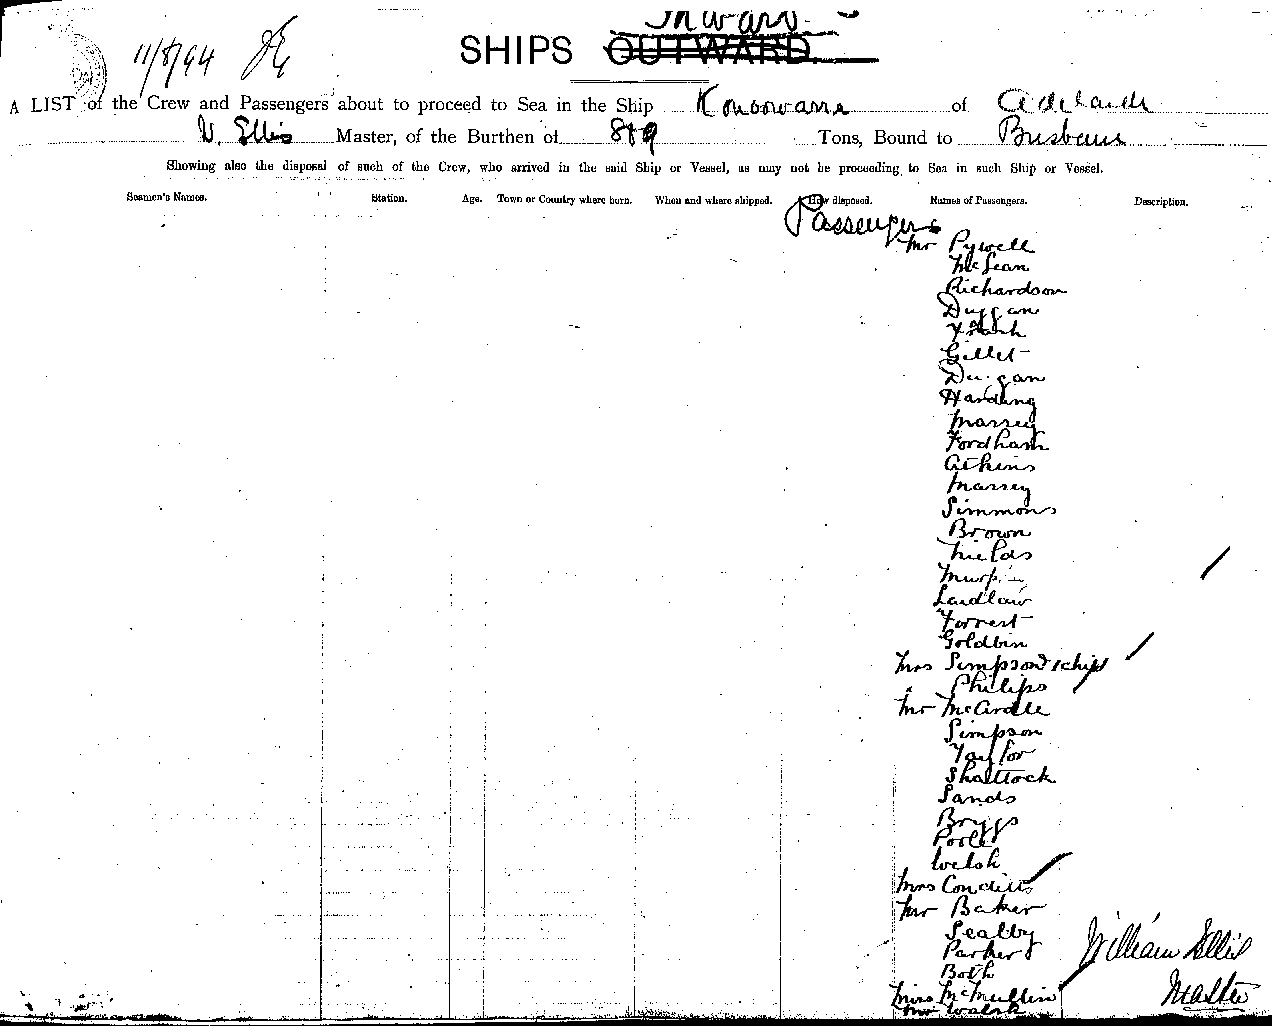 Inward
11/8/94
SHIPS OUTWARD
A LIST of the Crew and Passengers about to proceed to Sea in the Ship Konoowarra of Adelaide
W. Ellis Master, of the Burthen of Tons, Bound to Brisbane
Showing also the disposal of such of the Crew, who arrived in the said Ship or Vessel, as may not be proceeding to Sea in such Ship or Vessel.
Seamen's Names. Station. Age. Town or Country where born. When and where shipped. How disposed. Names of Passengers. Description.
Passengers
Mr Pywell
McLean
Richardson
Duggan
Gillet
Dugan
Harding
Massey
Fordham
Atkins
Massey
Simmons
Brown
Laidlaw
Forrest
Goldbin
Mrs Simpson
Philips
Mr McArdle
Simpson
Taylor
Shattock
Sands
Bryggs
Welsh
Mrs
Mr Baker
Sealby
Parker
Both
William Ellis
Miss McMullin
Master
Mr Walsh